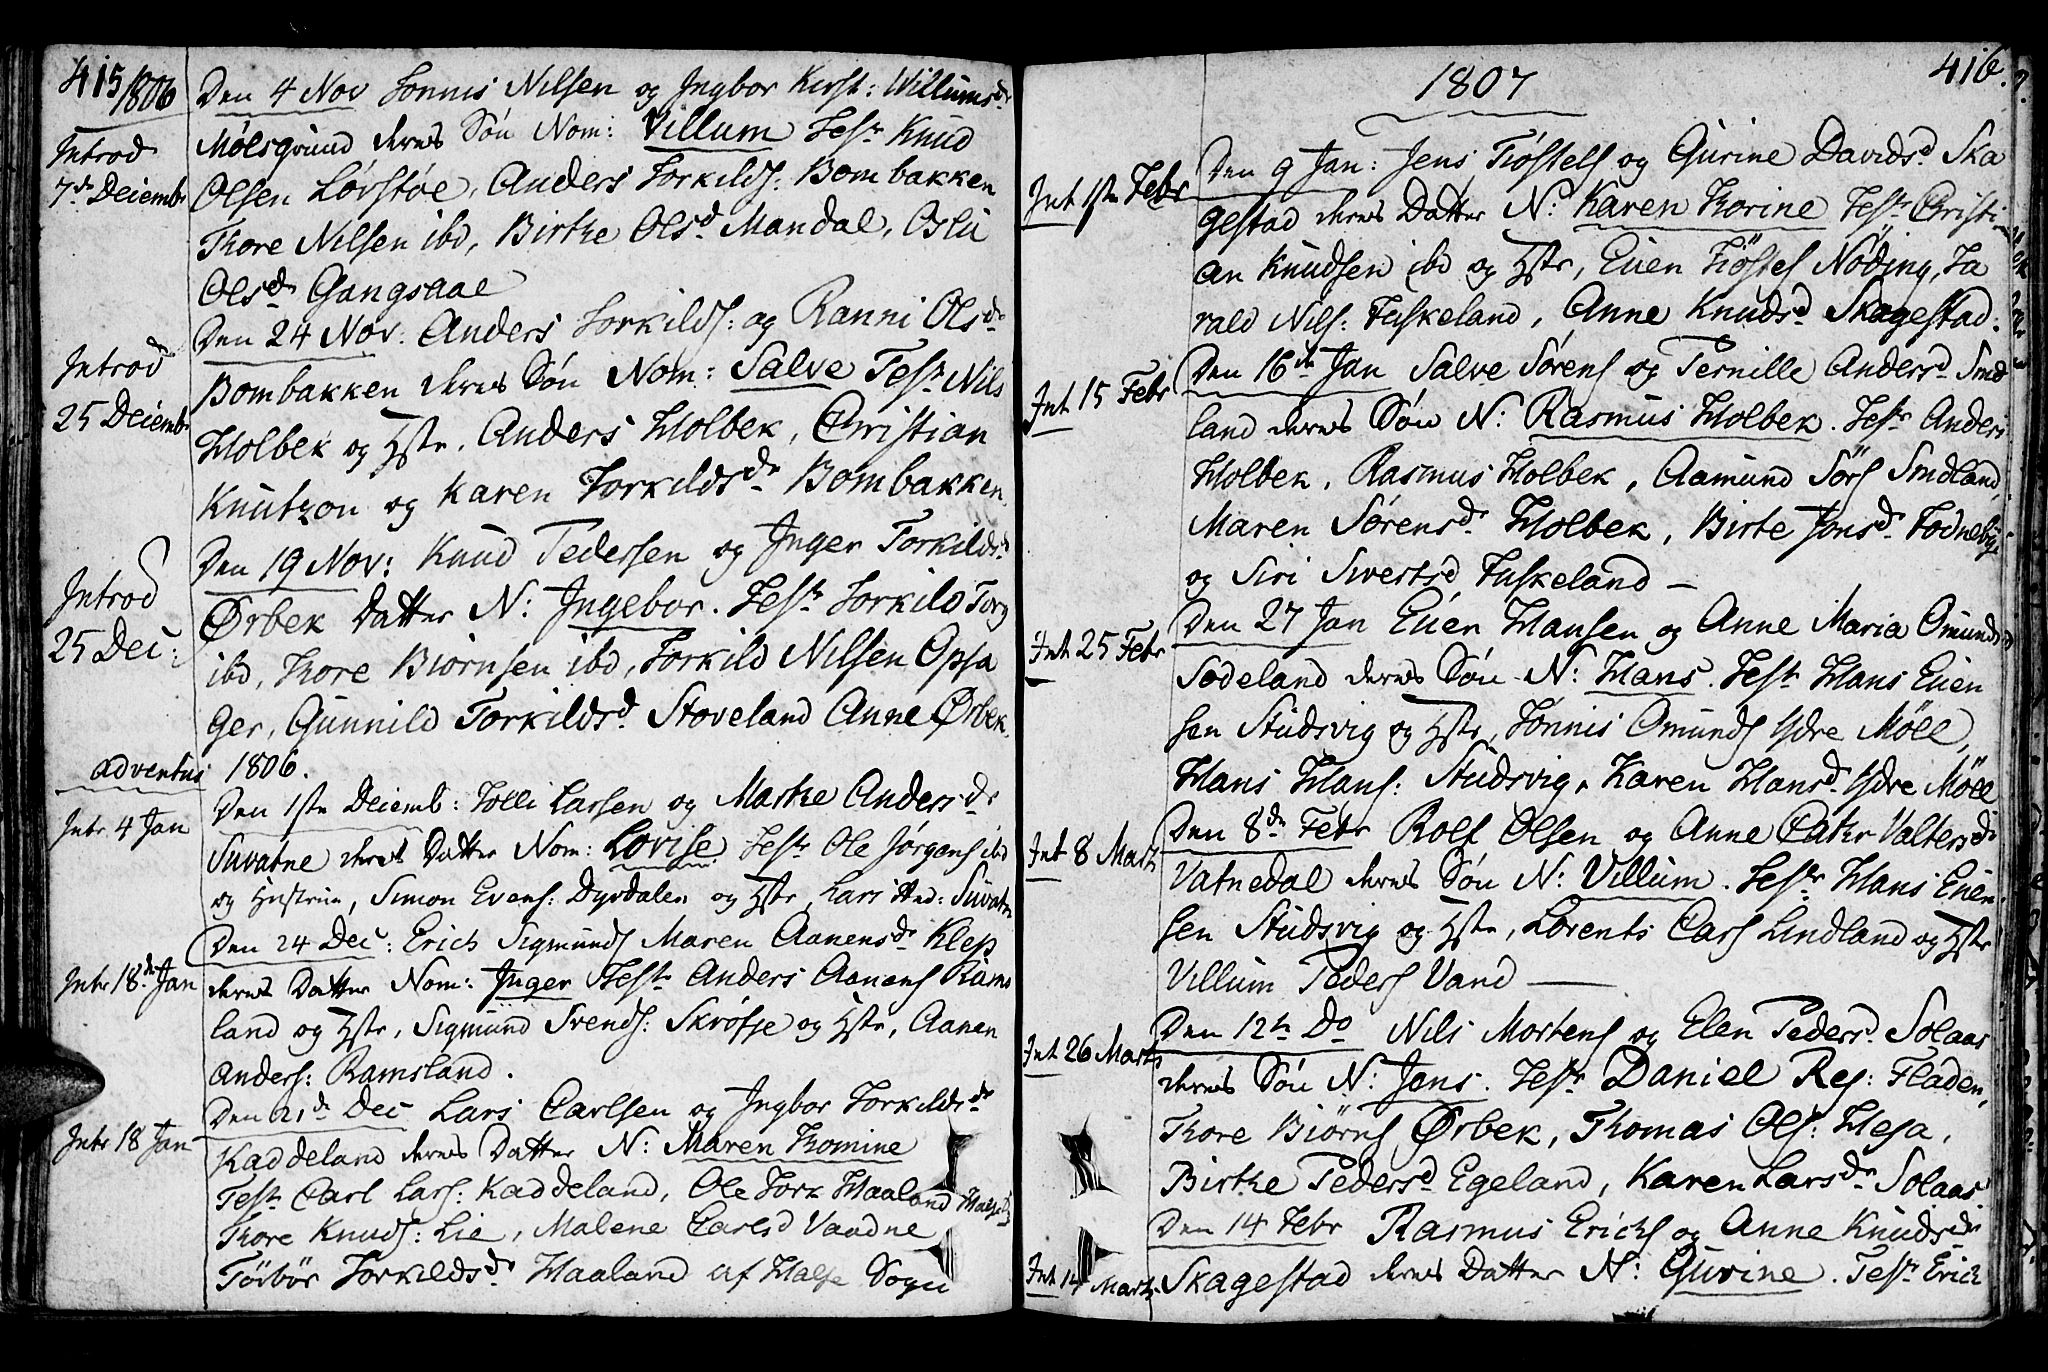 415/1806
Den 4 Nov Tonnis Nilsen og Ingbor Kirst: Willumsdr
Introd
7de Decembr
Mølsgrund deres Søn Nom: Villum Testr Knud
Olsen Lørstøe, Anders Torkilds: Bombakken
Thore Nilsen ibd, Birthe Olsd Mandal, Osli
Olsdr Gangsaae
Introd
25 Decembr
Den 24 Nov: Anders Torkilds: og Ranni Olsdr
Bombakken deres Søn Nom: Salve Testr Nils
Holbek og Hstr, Anders Holbek, Christian
Knutzon og Karen Torkildsdr Bombakken
Introd
25 Dec:
Den 19 Nov: Knud Pedersen og Inger Torkildsd
Ørbek Datter N: Ingebor. Testr Torkild Torg
ibd, Thore Biørnsen ibd, Torkild Nilsen Opsa
ger, Gunnild Torkildsd Stoveland Anne Ørbek
adventus 1806.
Intr 4 Jan
Den 1ste Decemb: Tolli Larsen og Marthe Andersdr
Suvatne deres Datter Nom: Lovise. Testr Ole Jørgens ibd
og Hustrue, Simon Evens: Dyrdalen og Hstr, Lars And: Suvatn
Intr 18de Jan
Den 24 Dec: Erich Sigmunds Maren Aanensdr Klep
deres Datter Nom: Inger Testr Anders Aanens Rams
land og Hstr, Sigmund Svends: Skrøfje og Hstr, Aanen
Anders: Ramsland.
Intr 18 Jan
Den 21de Dec Lars Carlsen og Ingbor Torkildsdr
Kaddeland deres Datter N: Maren Thomine
Testr Carl Lars: Kaddeland, Ole Tork Haaland Halse
Thore Knuds: Lie, Malene Carlsd Vaadne
Torbør Torkildsdr Haaland af Halse Sogn
416.
1807
Int 1ste Febr
Den 9 Jan: Jens Tiøstels og Gurine Davidsd Ska
gestad deres Datter N: Karen Thorine Testr Christi
an Knudsen ibd og Hstr, Even Tiøstels Nøding, Ha
rald Nils: Fuskeland, Anne Knudsd Skagestad.
Int 15 Febr
Den 16de Jan Salve Sørens og Pernille Andersd Smd
land deres Søn N: Rasmus Holbek. Testr Anders
Holbek, Rasmus Holbek, Aamund Sørs Smdland,
Maren Sørensdr Holbek, Birte Jonsd Fodnebye
og Siri Sivertsd Fuskeland —
Int 25 Febr
Den 27 Jan Even Hansen og Anne Maria Omundsd
Sodeland deres Søn N: Hans. Testr Hans Even
sen Studsvig og Hstr, Tønnis Omunds Ydre Møll,
Hans Hans: Studsvig, Karen Hansd Ydre Møll
Int 8 Marts
Den 8de Febr Rolf Olsen og Anne Cathr Valtersdr
Vatnedal deres Søn N: Villum. Testr Hans Even
sen Studsvig og Hstr, Lorents Carls Lindland og Hstr
Villum Peders Vand —
Int 26 Marts
Den 12te Do Nils Mortens og Elen Pedersd Solaas
deres Søn N: Jens. Testr Daniel Reg: Fladen,
Thore Biørns Ørbek, Thomas Ols: Hesa,
Birthe Pedersd Egeland, Karen Larsdr Solaas
Int 14 Marts
Den 14 Febr Rasmus Erichs og Anne Knudsdr
Skagestad deres Datter N: Gurine. Testr Erich